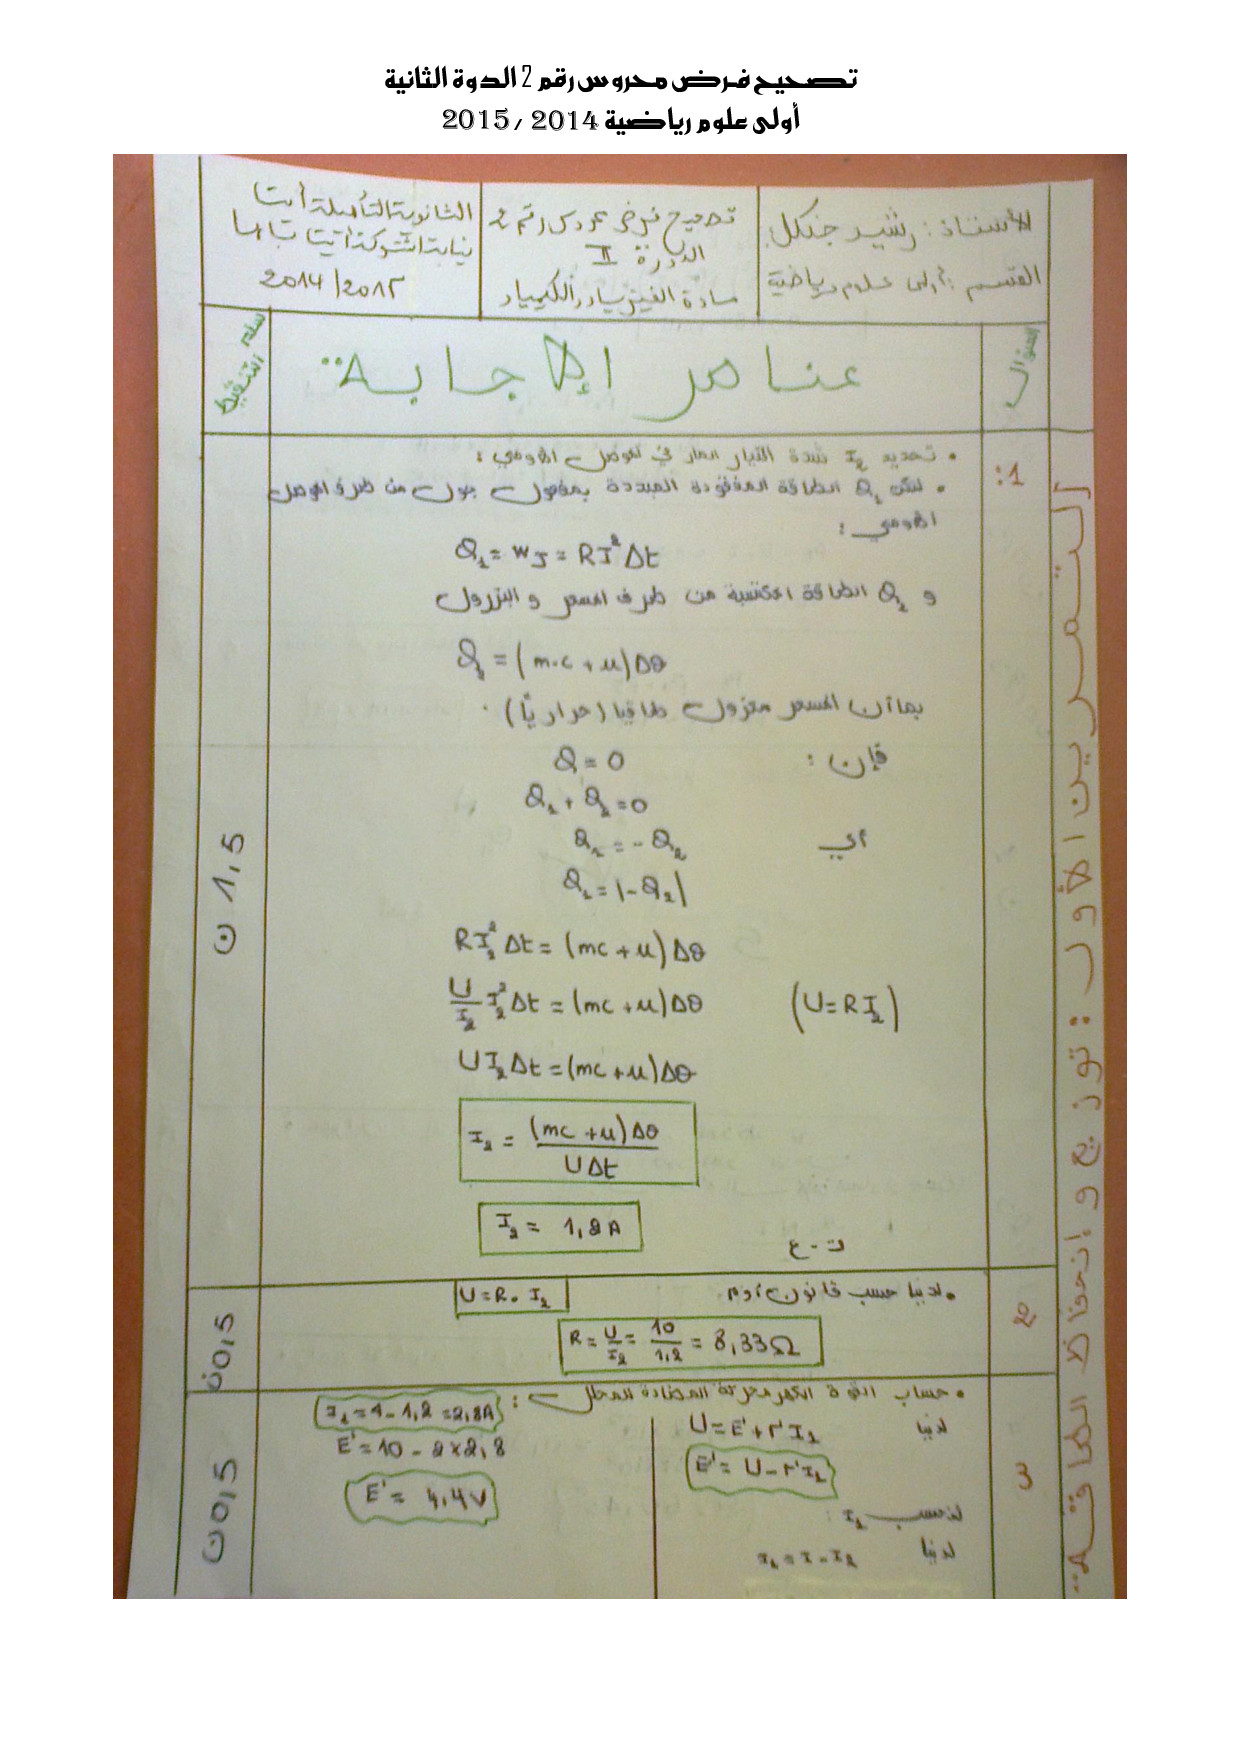 تصحيح فرض محروس رقم 2 الدوة الثانية
أولى علوم رياضية 2014 / 2015
الأستاذ : رشيد جنكل
القسم : أولى علوم رياضية
تصحيح فرض محروس رقم 2
الدورة II
مادة الفيزياء والكيمياء
الثانوية التأهيلية أيت
نيابة اشتوكة أيت باها
2014/2015
السؤال
عناصر الإجابة
سلم التنقيط
التمرين الأول : توزيع و إنحفاظ الطاقة
1:
• تحديد I₂ شدة التيار المار في الموصل الأومي :
• لتكن Q₁ الطاقة المفقودة المبددة بمفعول جول من طرف الموصل
الأومي :
Q₁ = W_J = RI² Δt
و Q₂ الطاقة المكتسبة من طرف المسعر و البترول
Q₂ = (m.c + μ)Δθ
بما أن المسعر معزول طاقيا (حراريًّا) .
فإن : Q = 0
Q₁ + Q₂ = 0
أي Q₁ = - Q₂
Q₁ = |-Q₂|
RI₂² Δt = (mc + μ)Δθ
U/I₂ I₂² Δt = (mc + μ)Δθ (U = RI₂)
UI₂Δt = (mc + μ)Δθ
I₂ = (mc + μ)Δθ / UΔt
ت-ع I₂ = 1,2A
1,5 ن
2
• لدينا حسب قانون أوم. U = R. I₂
R = U/I₂ = 10/1,2 = 8,33Ω
0,5ن
3
• حساب القوة الكهرمحركة المضادة للمحلل :
لدينا U = E' + r' I₁
E' = U - r' I₁
لنحسب I₁ :
لدينا I₁ = I - I₂
I₁ = 4 - 1,2 = 2,8A
E' = 10 - 2×2,8
E' = 4,4V
0,5ن